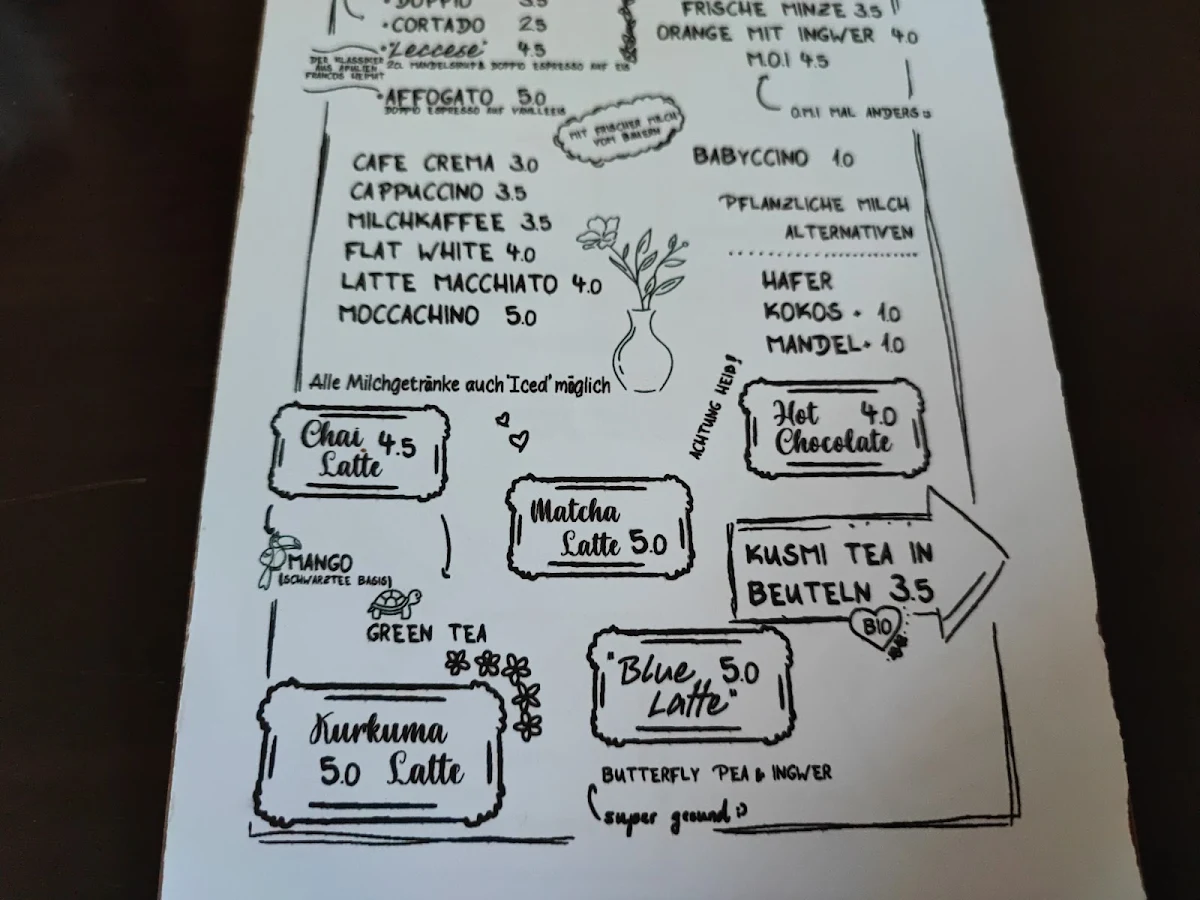 • DOPPIO 3.5
• CORTADO 2.5
• "Leccese" 4.5
DER KLASSIKER
AUS APULIEN
FRANCOS HEIMAT
2CL MANDELSIRUP & DOPPIO ESPRESSO AUF EIS
• AFFOGATO 5.0
DOPPIO ESPRESSO AUF VANILLEEIS
FRISCHE MINZE 3.5
ORANGE MIT INGWER 4.0
M.O.I 4.5
O.M.I MAL ANDERS
MIT FRISCHER MILCH
VOM BAUERN
CAFE CREMA 3.0
CAPPUCCINO 3.5
MILCHKAFFEE 3.5
FLAT WHITE 4.0
LATTE MACCHIATO 4.0
MOCCACHINO 5.0
Alle Milchgetränke auch 'Iced' möglich
BABYCCINO 1.0
PFLANZLICHE MILCH
ALTERNATIVEN
HAFER
KOKOS + 1.0
MANDEL + 1.0
Chai 4.5
Latte
ACHTUNG HEIß!
Hot 4.0
Chocolate
Matcha
Latte 5.0
MANGO
(SCHWARZTEE BASIS)
GREEN TEA
KUSMI TEA IN
BEUTELN 3.5
BIO
Kurkuma
5.0 Latte
"Blue 5.0
Latte"
BUTTERFLY PEA & INGWER
super gesund :)